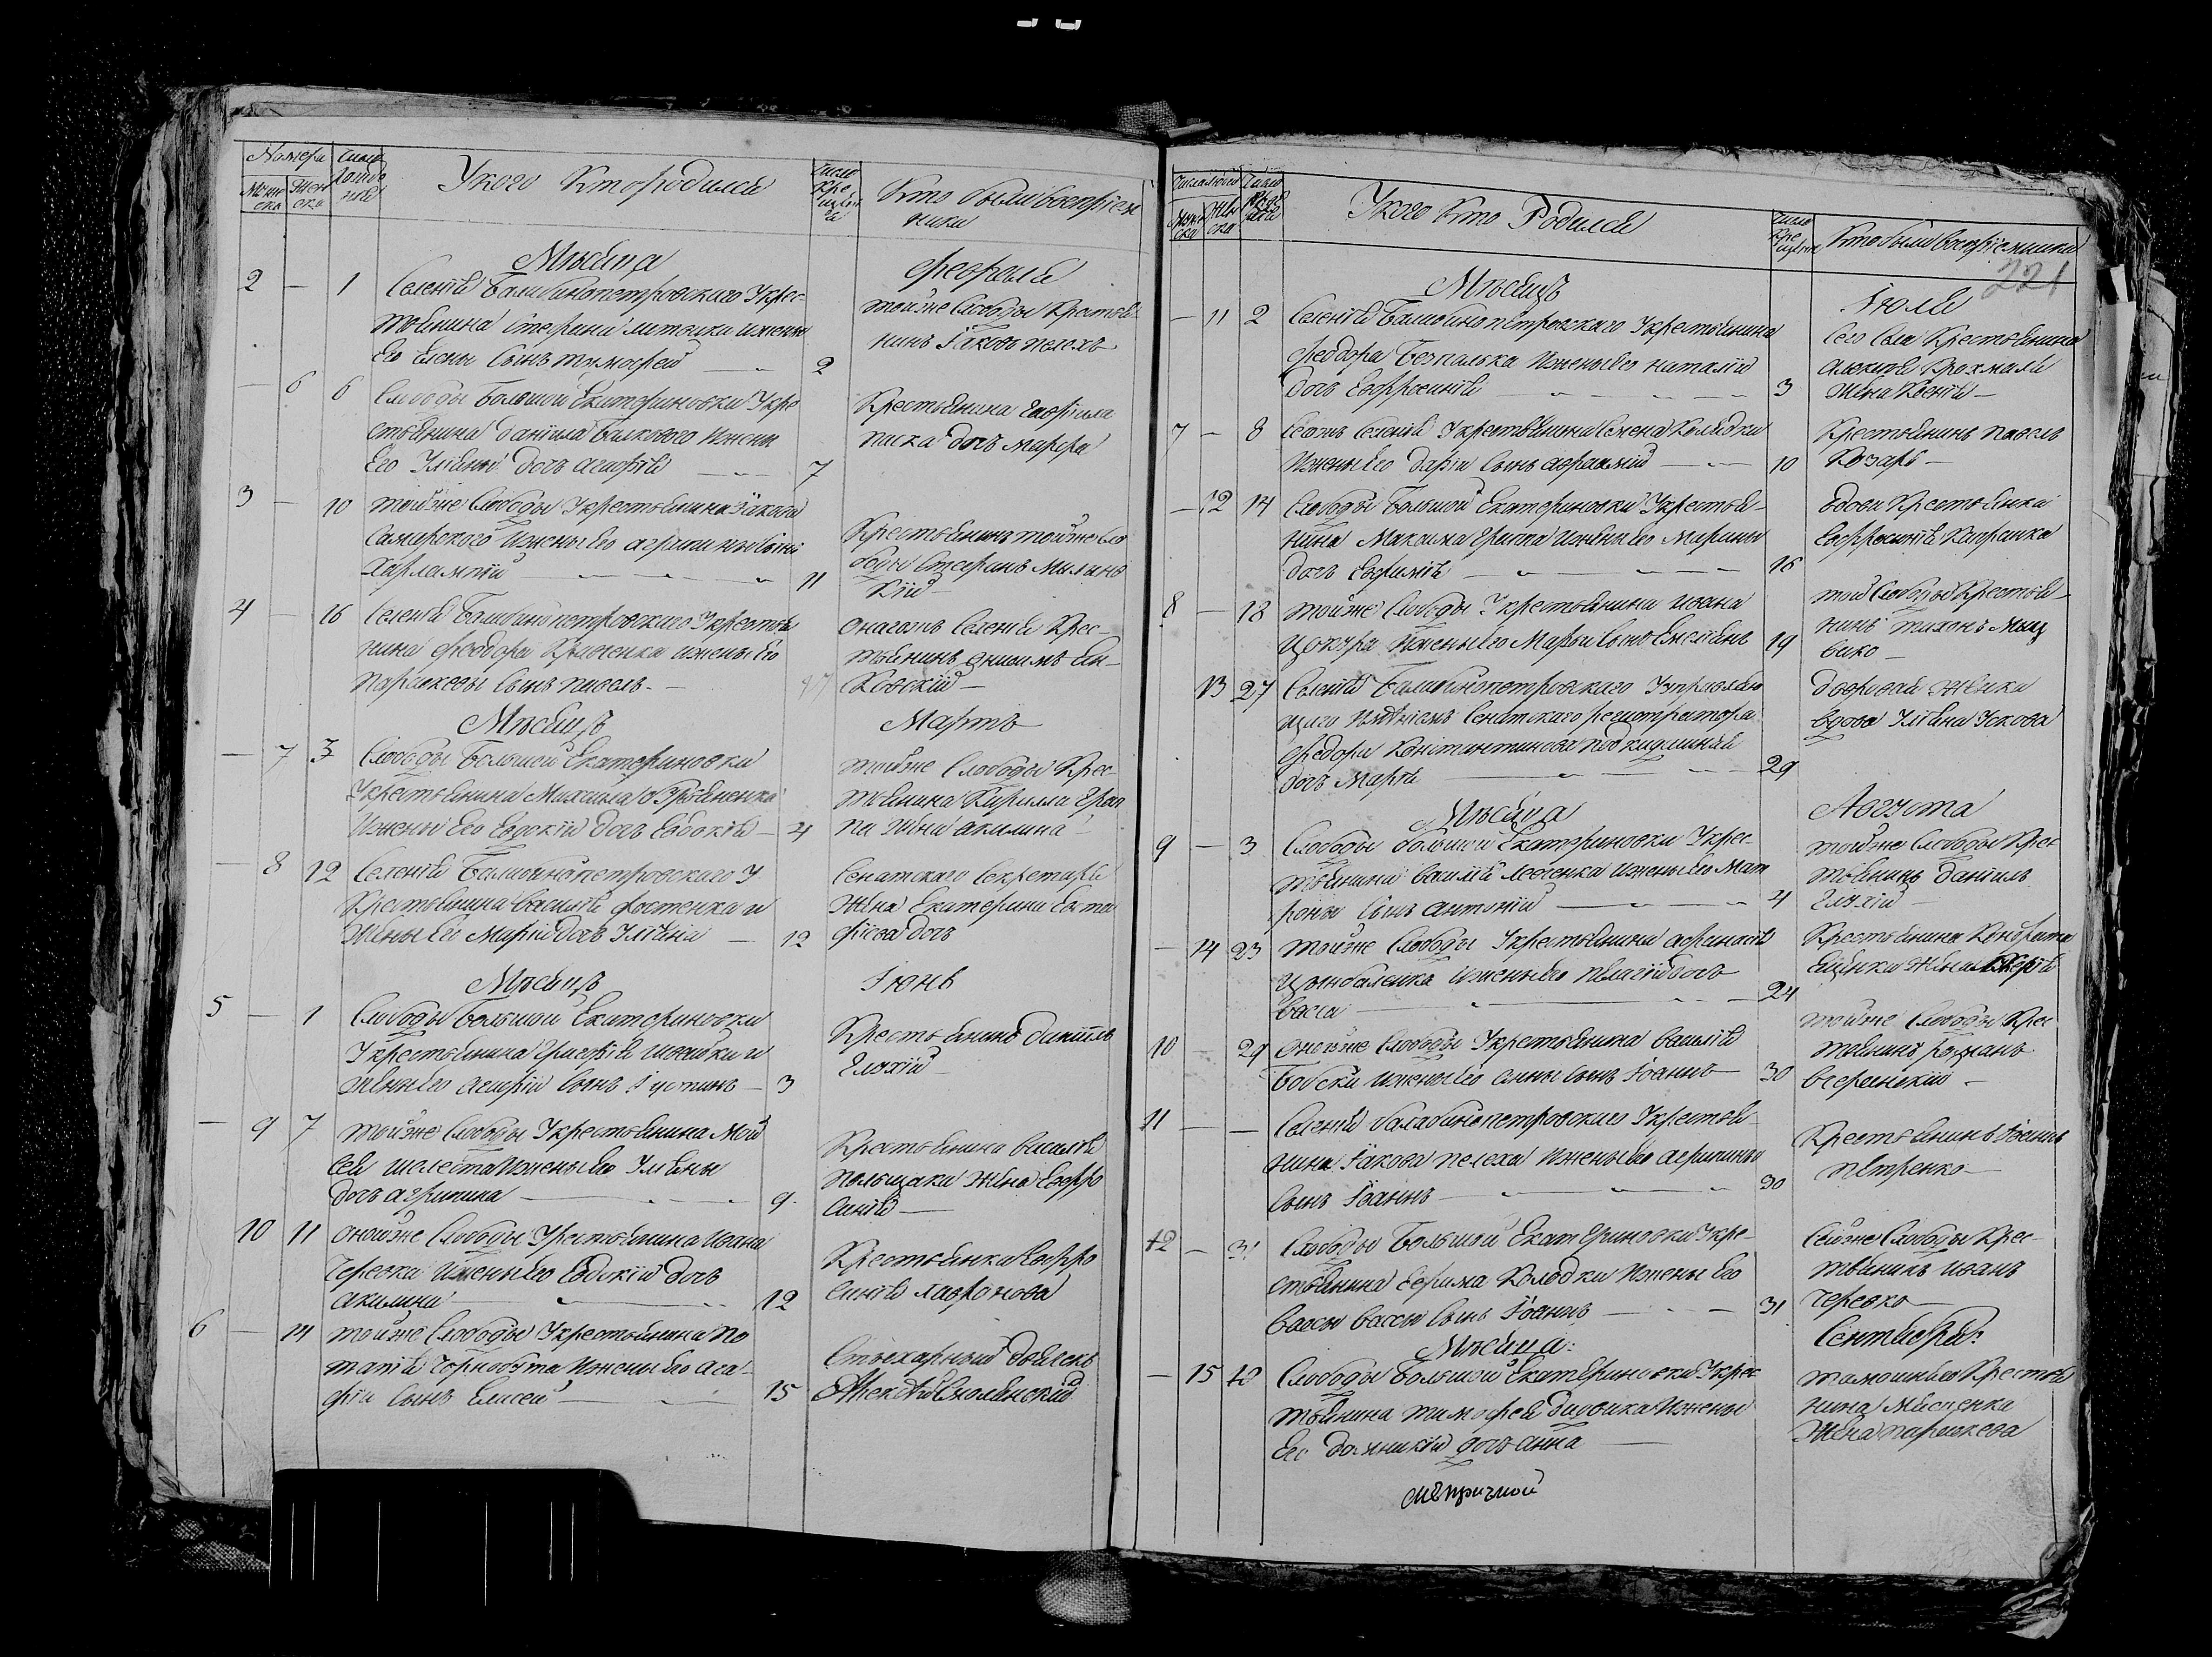 Номера
Число рожде ния
Муже ска
Жен ска
У кого Кто родился
Число кре щен ія
Кто были восприем
ники
Месяца
Февраля
2 — 1 Селенія Балабинопетровскаго У крес-
тьянина Стефана Литвина и жены
Его Елены сынъ Тимофей 2
тойже слободы крестья-
нинъ Іаковъ Пелехъ
— 6 6 Слободы Большой Екатериновки У кре
стьянина Даніила Волкового и жены
Его Уліяны дочь Агафія 7
Крестьянина Гавріила
дочь Марфа
3 — 10 тойже Слободы У крестьянина Іакова
Самарского и жены Его Агрипины сынъ
Харлампій 11
Крестьянинъ тойже Сло
боды Стефанъ Милинъ
кій
4 — 16 Селенія Балабинопетровскаго У крестья
нина Феодора Кравченка и жены Его
Параскевы сынъ Павелъ 17
онагожъ Селенія Крес-
тьянинъ Онисимъ
ковскій
Месяцъ
Мартъ
— 7 3 Слободы Большой Екатериновки
У крестьянина Михаила
и жены Его Евдокіи дочь Евдокія 4
тойже Слободы Крес-
тьянина Кирилла
жена Акилина
— 8 12 Селенія Балабинопетровскаго У
Крестьянина Василія Костенка и
жены Его Маріи дочь Уліяна 12
Сенатскаго Секретаря
жена Екатерина Евста
фіева дочь
Месяцъ
Іюнь
5 — 1 Слободы Большой Екатериновки
У крестьянина Григорія Ивашки и
жены Его Агафіи сынъ Іустинъ 3
Крестьянинъ Даніилъ
Глухій
— 9 7 тойже Слободы У крестьянина Мой
сея Шелеста и жены Его Уліяны
дочь Агрипина 9
Крестьянина Василія
Польщака жена Евфро
синія
10 11 онойже Слободы У крестьянина Ивана
Черевка и жены Его Евдокіи дочь
Акилина 12
Крестьянка Евфро
синія Лавронова
6 — 14 тойже Слободы У крестьянина По
тапія Чорнобута и жены Его Ага-
фіи сынъ Елисей 15
Стихарный дьячекъ
Алексѣй Смолянский
Числа людей
Число рожде нія
Муже ска
Жен ска
У кого Кто Родился
Число кре щенія
Кто были восприемники
221
Месяцъ
Іюля
— 11 2 Селенія Балабинопетровскаго У крестьянина
Феодора Безпалька и жены его Наталіи
дочь Евфросинія 3
Сего Села Крестьянина
Алексея Крохмаля
жена Ксенія
7 — 8 Сегожъ Селенія У крестьянина Семена Колядки
и жены Его Дарьи сынъ Авраамій 10
Крестьянинъ Павелъ
Козаръ
— 12 14 Слободы Большой Екатериновки У крестья-
нина Максима Грипа и жены Его Марины
дочь Евфимія 16
вдова Крестьянка
Евфросинія Кавранка
8 — 18 тойже Слободы У крестьянина Ивана
Цокура и жены Его Марфы сынъ Емелянъ 19
той Слободы Крестья-
нинъ Тихонъ
13 27 Селенія Балабинопетровскаго У управляю
щаго имѣніемъ Сенатскаго регистратора
Федора Константинова подкидышная
дочь Марѳа 29
дворовая жінка
вдова Уліяна Ускова
Месяца
Августа
9 — 3 Слободы Большой Екатериновки У крес-
тьянина Василія Левченка и жены Его Мат
роны сынъ Антоній 4
тойже Слободы Крес
тьянинъ Даніилъ
Глухій
— 14 23 тойже Слободы У крестьянина Афанасія
Цымбаленка и жены Его Пелагіи дочь
Васса 24
Крестьянина Кондрата
жена
10 29 онойже Слободы У крестьянина Василія
и жены Его Анны сынъ Іоаннъ 30
тойже Слободы Крес
тьянинъ Романъ
11 — — Селенія Балабинопетровскаго У крестья-
нина Іакова Пелеха и жены Его Агрипины
сынъ Іоаннъ 30
Крестьянинъ Іоаннъ
Петренко
12 — 31 Слободы Большой Екатериновки У кре-
стьянина Ефима Колодки и жены Его
Вассы Вассы сынъ Іоаннъ 31
Сейже Слободы Крес-
тьянинъ Иванъ
Черевко
Месяца:
Сентября:
— 15 10 Слободы Большой Екатериновки У крес
тьянина Тимофея и жены
Его Домникіи дочь Анна
тамошняго Крестья
нина
жена Параскева
метричной